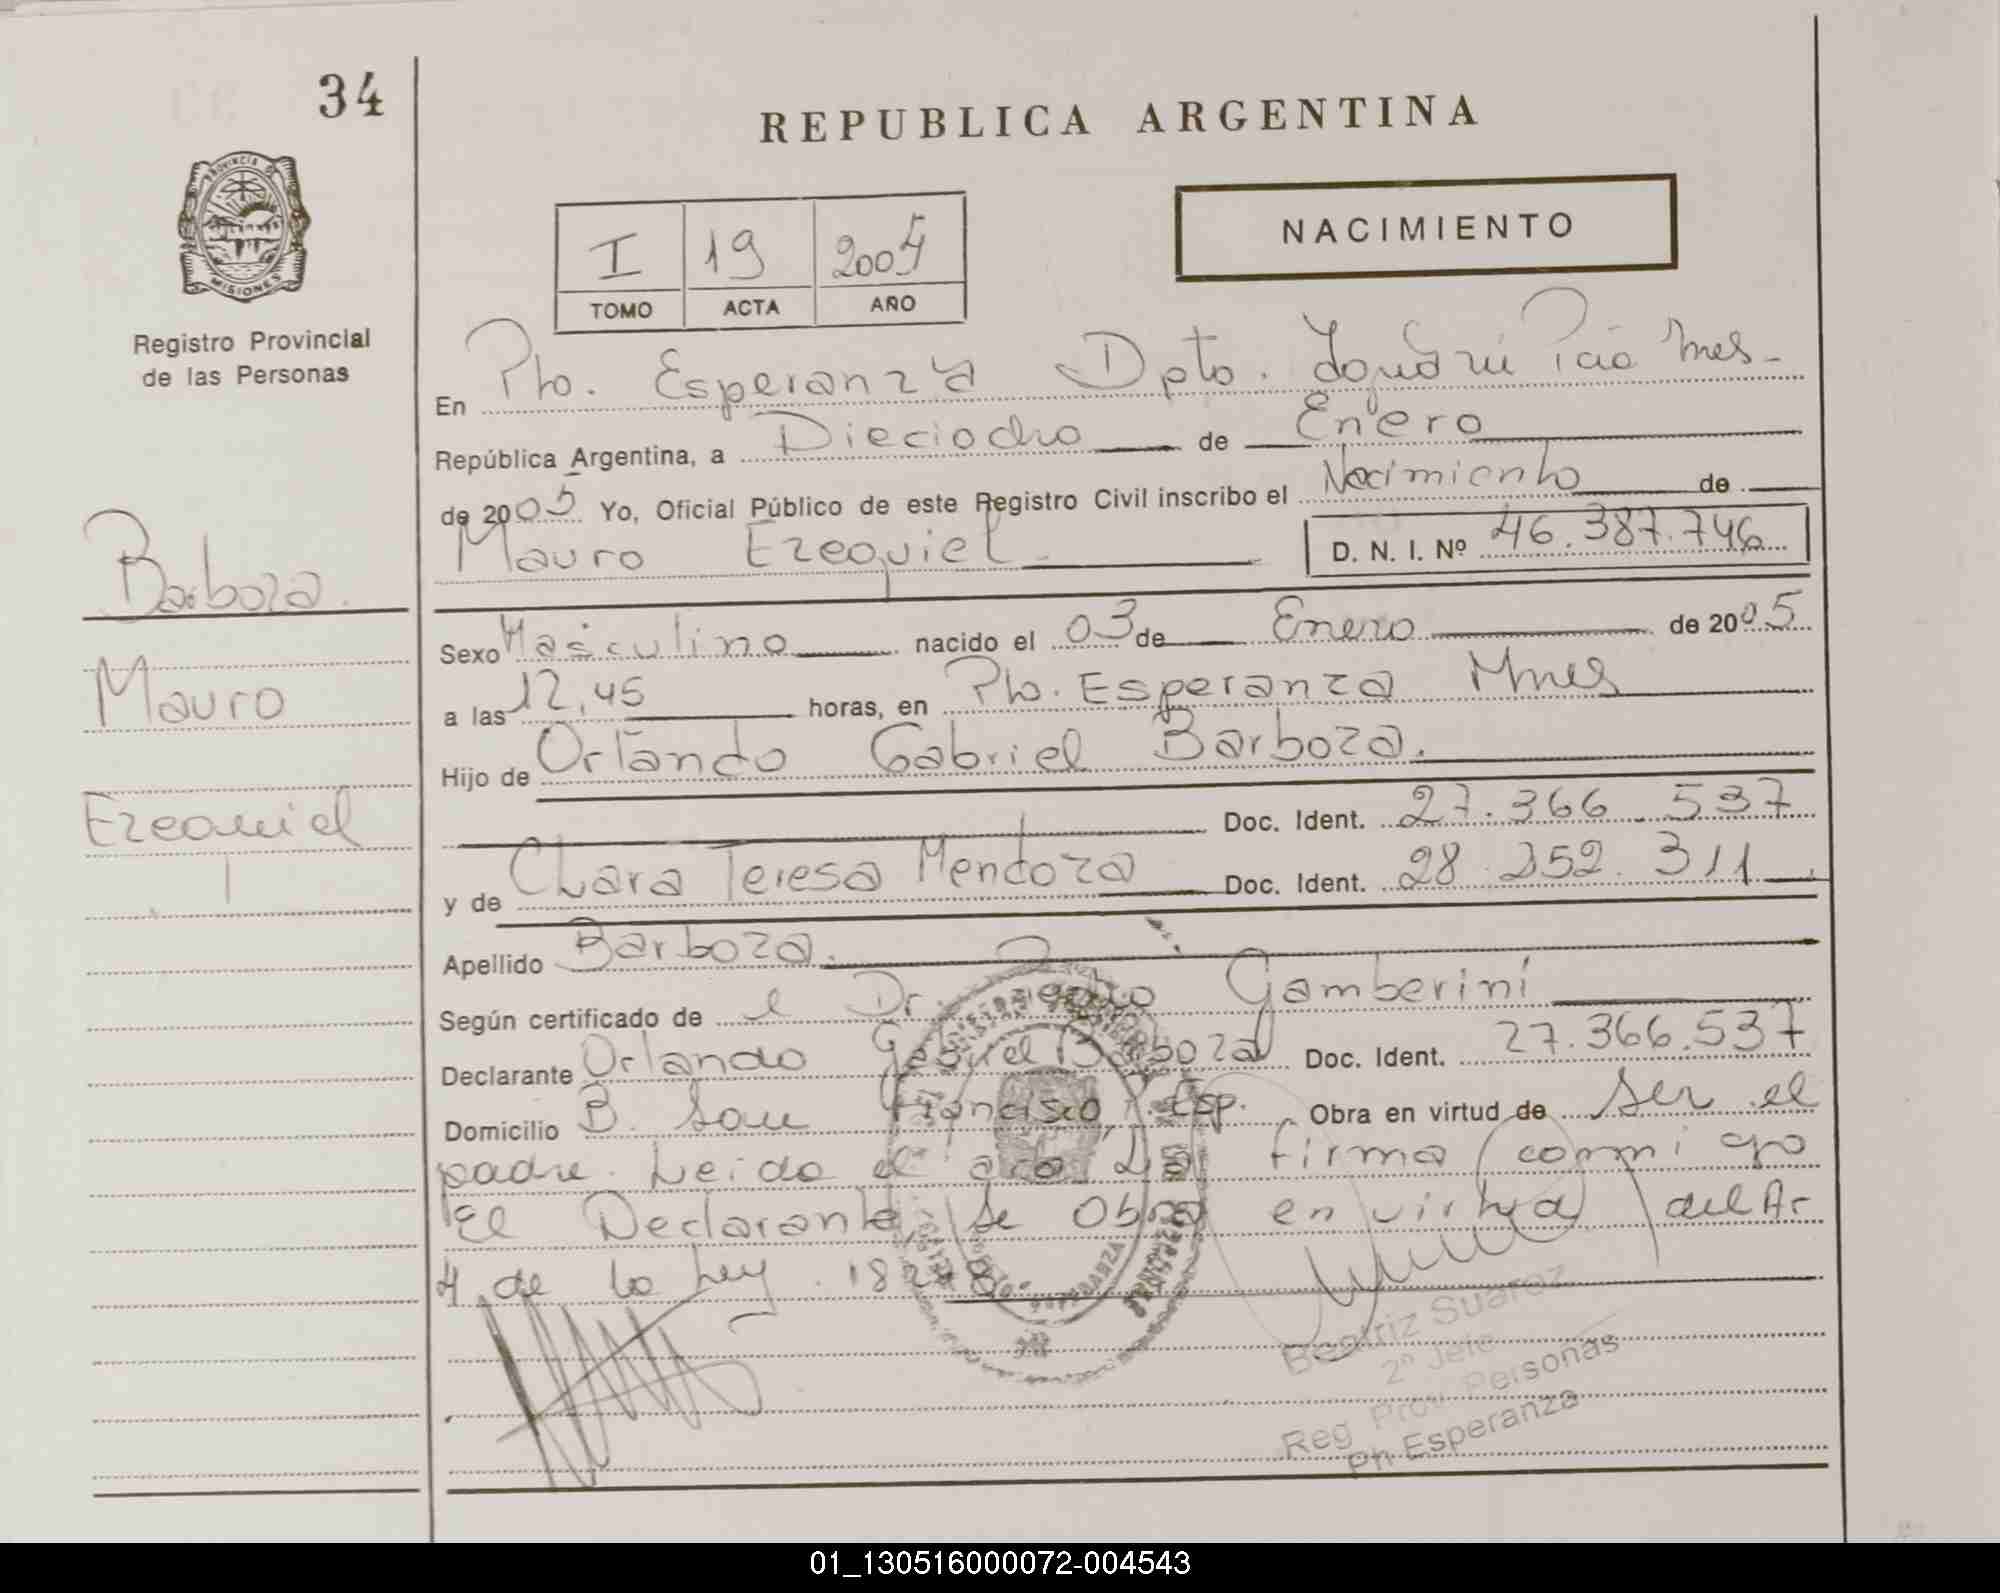 34
REPUBLICA ARGENTINA
PROVINCIA DE
MISIONES
Registro Provincial
de las Personas
I 19 2005
TOMO ACTA AÑO
NACIMIENTO
En Pto. Esperanza Dpto. Iguazú Mnes-
República Argentina, a Dieciocho de Enero
de 2005 Yo, Oficial Público de este Registro Civil inscribo el Nacimiento de
Mauro Ezequiel D. N. I. Nº 46.387.746
Barboza.
Mauro
Ezequiel
Sexo Masculino nacido el 03 de Enero de 2005
a las 12,45 horas, en Pto. Esperanza Mnes
Hijo de Orlando Gabriel Barboza.
Doc. Ident. 27.366.537
y de Clara Teresa Mendoza Doc. Ident. 28.252.311
Apellido Barboza.
Según certificado de el Dr. Gamberini
Declarante Orlando Gabriel Barboza Doc. Ident. 27.366.537
Domicilio B. San Francisco, P. Esp. Obra en virtud de ser el
padre. Leido el acta La firma conmigo
El Declarante, Se Obra en virtud del Ar
4 de la Ley. 18248
Beatriz Suarez
2º Jefe
Reg Prov Personas
Pto Esperanza
01_130516000072-004543